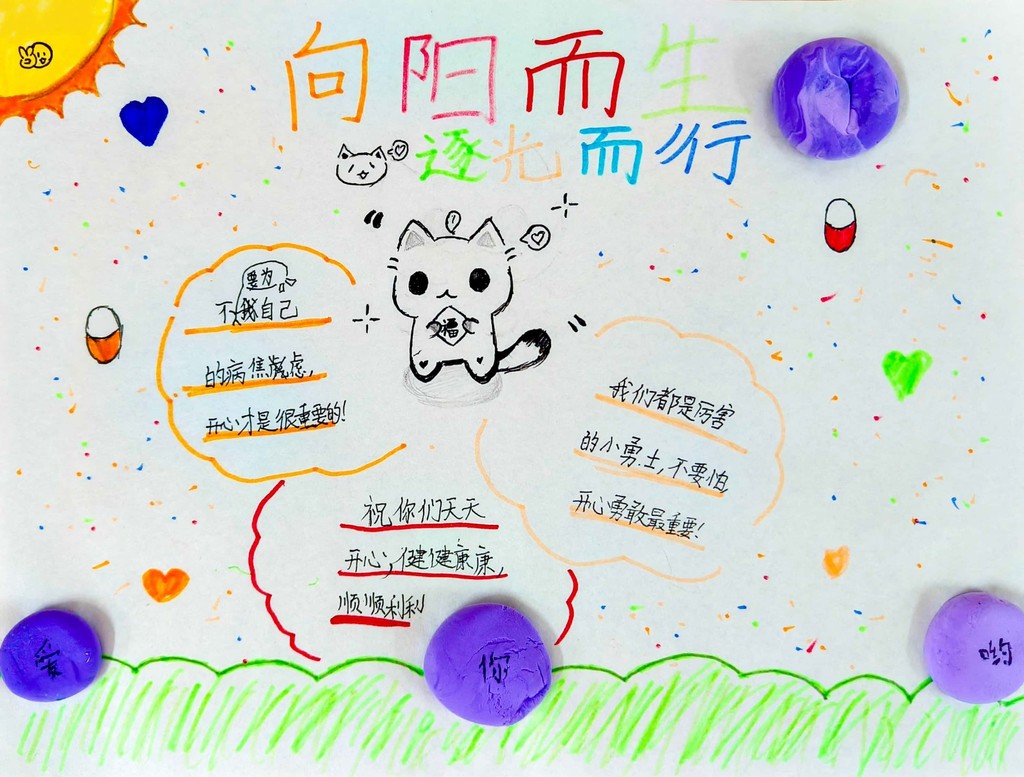 向阳而生
逐光而行
福
不要为我自己
的病焦虑,
开心才是很重要的!
我们都是厉害
的小勇士,不要怕
开心勇敢最重要!
祝你们天天
开心,健健康康,
顺顺利利
爱
你
哟